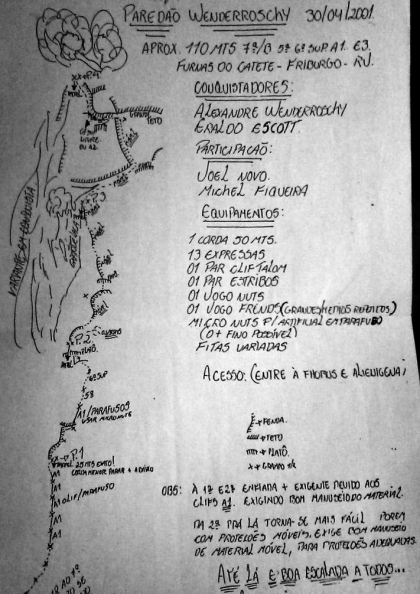 PAREDÃO WENDERROSCHY 30/04/2001
APROX. 110 MTS 7º/B 5º 6º SUP. A1. E3.
FURNAS DO CATETE - FRIBURGO - RJ.
CONQUISTADORES:
ALEXANDRE WENDERROSCHY
ERALDO ESCOTT.
PARTICIPAÇÃO:
JOEL NOVO.
MICHEL FIGUEIRA
EQUIPAMENTOS:
1 CORDA 50 MTS.
13 EXPRESSAS
01 PAR CLIF TALON
01 PAR ESTRIBOS
01 JOGO NUTS
01 JOGO FRENDS (GRANDES MEDIOS REPETIDOS)
MICRO NUTS P/ ARTIFICIAL EM PARAFUSO
(O + FINO POSSÍVEL)
FITAS VARIADAS
ACESSO: (ENTRE À FHOPUS E ALIENIGENA)
FENDA.
TETO
PLATÔ.
GRAMPO
OBS: À 1ª E 2ª ENFIADA + EXIGENTE DEVIDO AOS
CLIFS A1. EXIGINDO BOM MANUSEIO DO MATERIAL.
DA 2ª PRA LÁ TORNA-SE MAIS FÁCIL POREM
COM PROTEÇÕES MÓVEIS. EXIGE BOM MANUSEIO
DE MATERIAL MÓVEL, PARA PROTEÇÕES ADEQUADAS.
ATÉ LÁ E BOA ESCALADA A TODOS...
P.4
GRANDE
TETO
P.3
P.2
PLATÔ
6º SUP
58
A1/PARAFUSOS
USAR MICRO NUTS
P.1
25 MTS EXATO!
A1
A1
CLIF/PARAFUSO
A1
A1